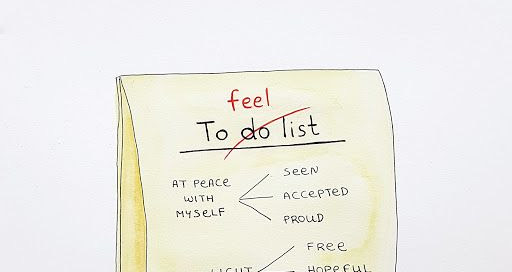 feel
To do list
SEEN
AT PEACE
WITH
MYSELF
ACCEPTED
PROUD
FREE
LIGHT
HOPEFUL